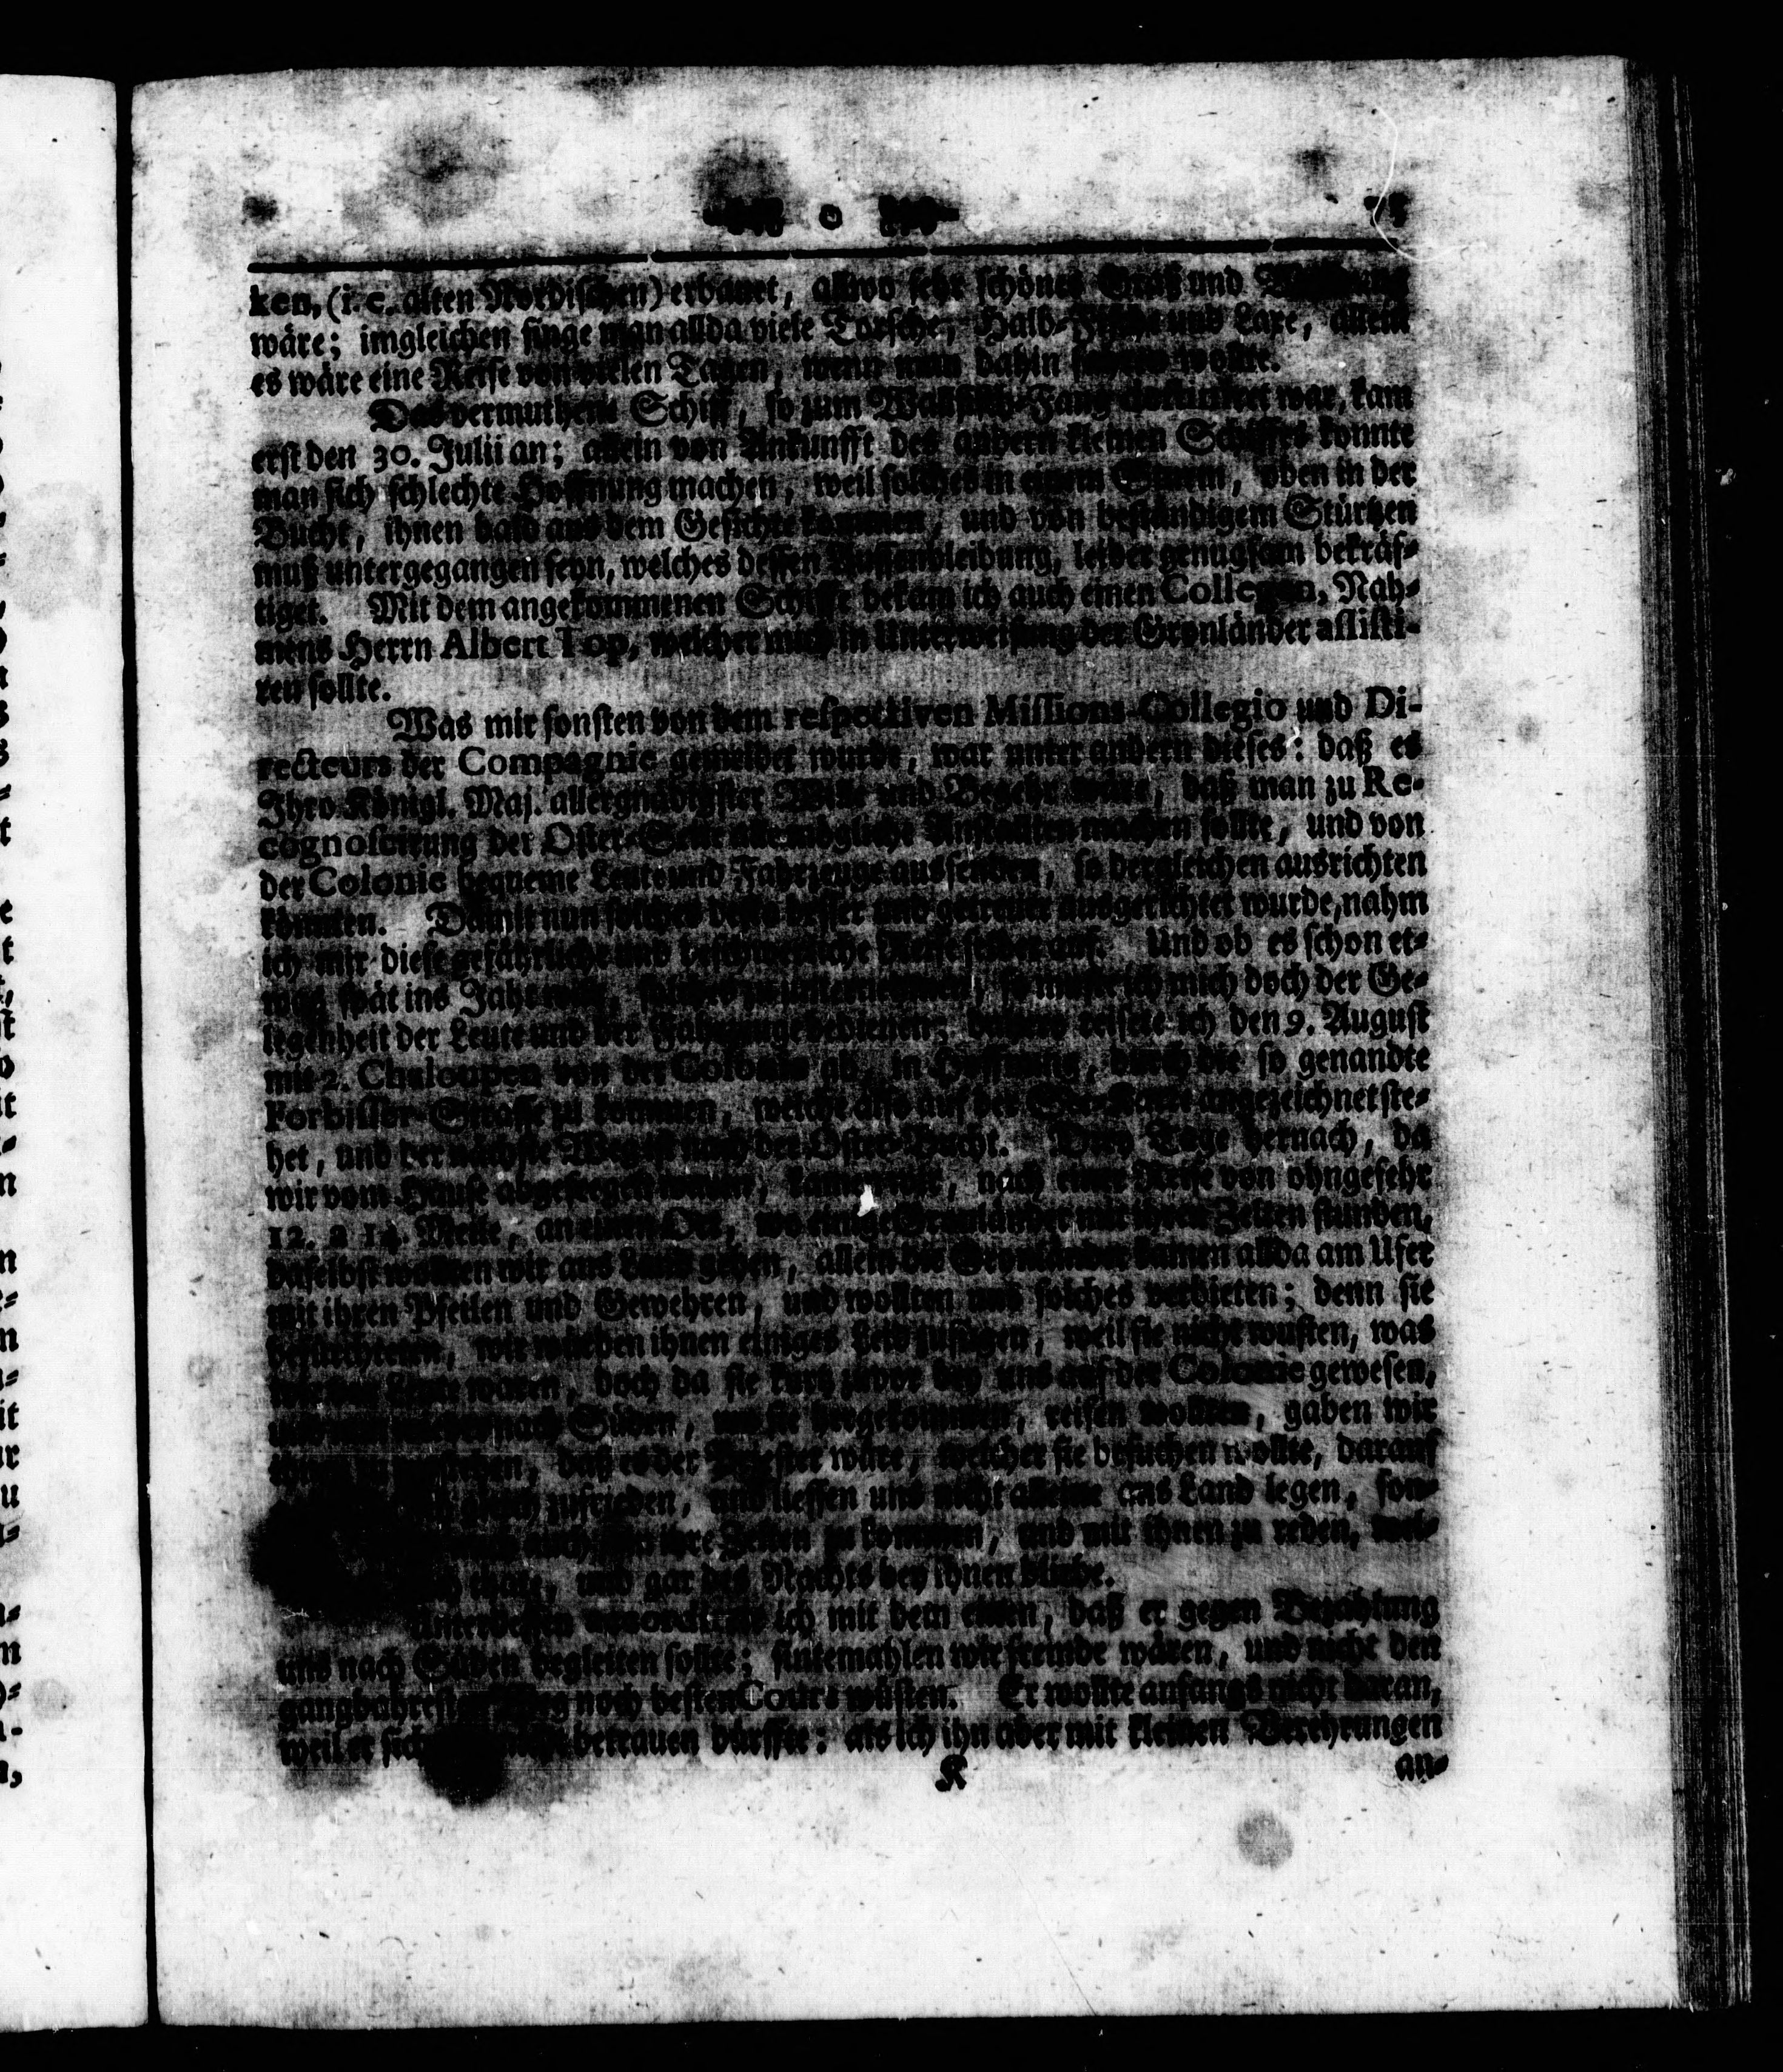 o
ken, (i. e. alten Nordischen) erbauet, allwo sehr schönes Graß und
wäre; imgleichen finge man allda viele Torsche, Halb-Fische und Laxe, allein
es wäre eine Reise von vielen Tagen, wenn man dahin wollte.
Das vermuthete Schiff, so zum Wallfisch-Fang war, kam
erst den 30. Julii an; allein von Ankunfft des andern kleinen Schiffes konnte
man sich schlechte Hoffnung machen, weil solches in einem Sturm, oben in der
Bucht, ihnen bald aus dem Gesichte kommen, und von beständigem Stürtzen
muß untergegangen seyn, welches dessen Aussenbleibung, leider genugsam bekräf-
tiget. Mit dem angekommenen Schiffe bekam ich auch einen Collegen, Nah-
mens Herrn Albert Top, welcher mich in Unterweisung der Grönländer assisti-
ren sollte.
Was mir sonsten von dem respectiven Missions-Collegio und Di-
recteurs der Compagnie gemeldet wurde, war unter andern dieses: daß es
Ihro Königl. Maj. allergnädigster Wille und Begehr wäre, daß man zu Re-
cognoscirung der Oster-Seite alle mögliche Anstalten machen sollte, und von
der Colonie bequeme Leute und Fahrzeuge aussenden, so dergleichen ausrichten
könnten. Damit nun solches desto besser und getreuer ausgerichtet wurde, nahm
ich mir diese gefährliche und beschwerliche Reise selber auf. Und ob es schon et-
was spät ins Jahr war, solches zu unternehmen, so muste ich mich doch der Ge-
legenheit der Leute und der Fahrzeuge bedienen; dahero reisete ich den 9. August
mit 2. Chaloupen von der Colonie ab, in Hoffnung, durch die so genandte
Forbisser-Strasse zu kommen, welche also auf der See-Karte angezeichnet ste-
het, und der nächste Weg ist nach der Oster-Bucht. Drey Tage hernach, da
wir vom Hause abgesegelt waren, kamen wir, nach einer Reise von ohngefehr
12. a 14. Meile, an einen Ort, wo einige Grönländer mit ihren Zelten stunden,
daselbst wollten wir ans Land gehen, allein die Grönländer kamen allda am Ufer
mit ihren Pfeilen und Gewehren, und wollten uns solches verbieten; denn sie
befürchteten, wir würden ihnen einiges Leid zufügen, weil sie nicht wusten, was
wir vor Leute waren, doch da sie kurtz zuvor bey uns auf der Colonie gewesen,
und nach Süden, wo sie hergekommen, reisen wollten, gaben wir
ihnen zu verstehen, daß es der Priester wäre, welcher sie besuchen wollte, darauf
gleich zufrieden, und liessen uns nicht alleine ans Land legen, son-
auch, in ihre Zelten zu kommen, und mit ihnen zu reden, wel-
ich thate, und gar des Nachts bey ihnen bliebe.
Unterdessen accordirte ich mit dem einen, daß er gegen Bezahlung
uns nach Süden begleiten sollte; sintemahlen wir fremde wären, und nicht den
gangbahresten Weg noch besten Cours wüsten. Er wollte anfangs nicht daran,
weil er sich betrauen dürffte: als ich ihn aber mit kleinen Verehrungen
K an-